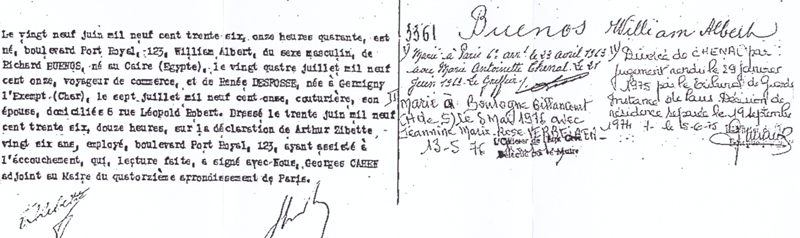 Le vingt neuf juin mil neuf cent trente six, onze heures quarante, est
né, boulevard Port Royal, 123, William Albert, du sexe masculin, de
Richard BUENOS, né au Caire (Egypte), le vingt quatre juillet mil neuf
cent onze, voyageur de commerce, et de Renée DESFOSSE, née à Germigny
l'Exempt (Cher), le sept juillet mil neuf cent onze, couturière, son
épouse, domiciliés 6 rue Léopold Robert. Dressé le trente juin mil neuf
cent trente six, douze heures, sur la déclaration de Arthur
vingt six ans, employé, boulevard Port Royal, 123, ayant assisté à
l'accouchement, qui, lecture faite, a signé avec Nous, Georges CAHEN
adjoint au Maire du quatorzième arrondissement de Paris.
3361 Buenos William Albert
Marié à Paris 6e arrt le 23 avril 1963
avec Marie Antoinette Chenal. Le
juin 1963. Le Greffier
Marié à Boulogne Billancourt
(H-de-S) le 8 Mai 1976 avec
Jeannine Marie-Rose
13-5 76
Divorcé de CHENAL par
jugement rendu le 29 janvier
1975 par le Tribunal de Grande
Instance de Paris Décision de
résidence séparée le 19 septembre
1974